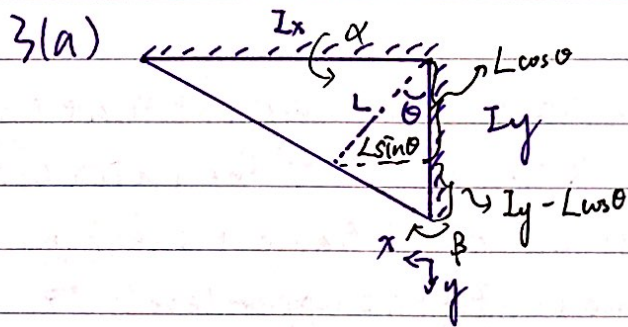 3(a)
Ix α
Lcosθ
L θ Iy
Lsinθ
Iy - Lcosθ
x β
y